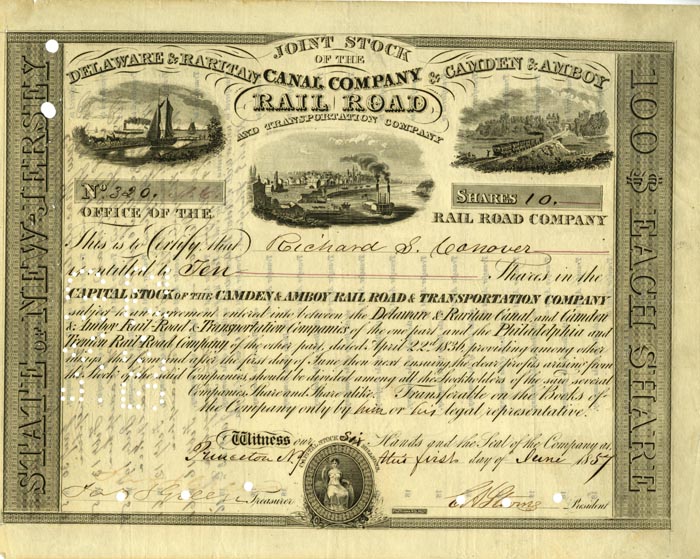 JOINT STOCK
OF THE
DELAWARE & RARITAN CANAL COMPANY & CAMDEN & AMBOY
RAIL ROAD
AND TRANSPORTATION COMPANY
STATE OF NEW-JERSEY
100 $ EACH SHARE
No. 320.
SHARES 10.
OFFICE OF THE
RAIL ROAD COMPANY
This is to Certify, that Richard S. Conover
is entitled to Ten Shares in the
CAPITAL STOCK OF THE CAMDEN & AMBOY RAIL ROAD & TRANSPORTATION COMPANY
subject to an agreement entered into between the Delaware & Raritan Canal, and Camden
& Amboy Rail-Road & Transportation Companies of the one part, and the Philadelphia and
Trenton Rail-Road Company of the other part, dated April 22nd 1836, providing among other
things that from and after the first day of June then next ensuing the clear profits arising from
the Stock of the said Companies, should be divided among all the Stockholders of the said several
Companies, Share and Share alike. Transferable on the Books of
the Company only by him or his legal representative.
Witness our Six Hands and the Seal of the Company at
Princeton NJ this first day of June 1857
Treasurer
President